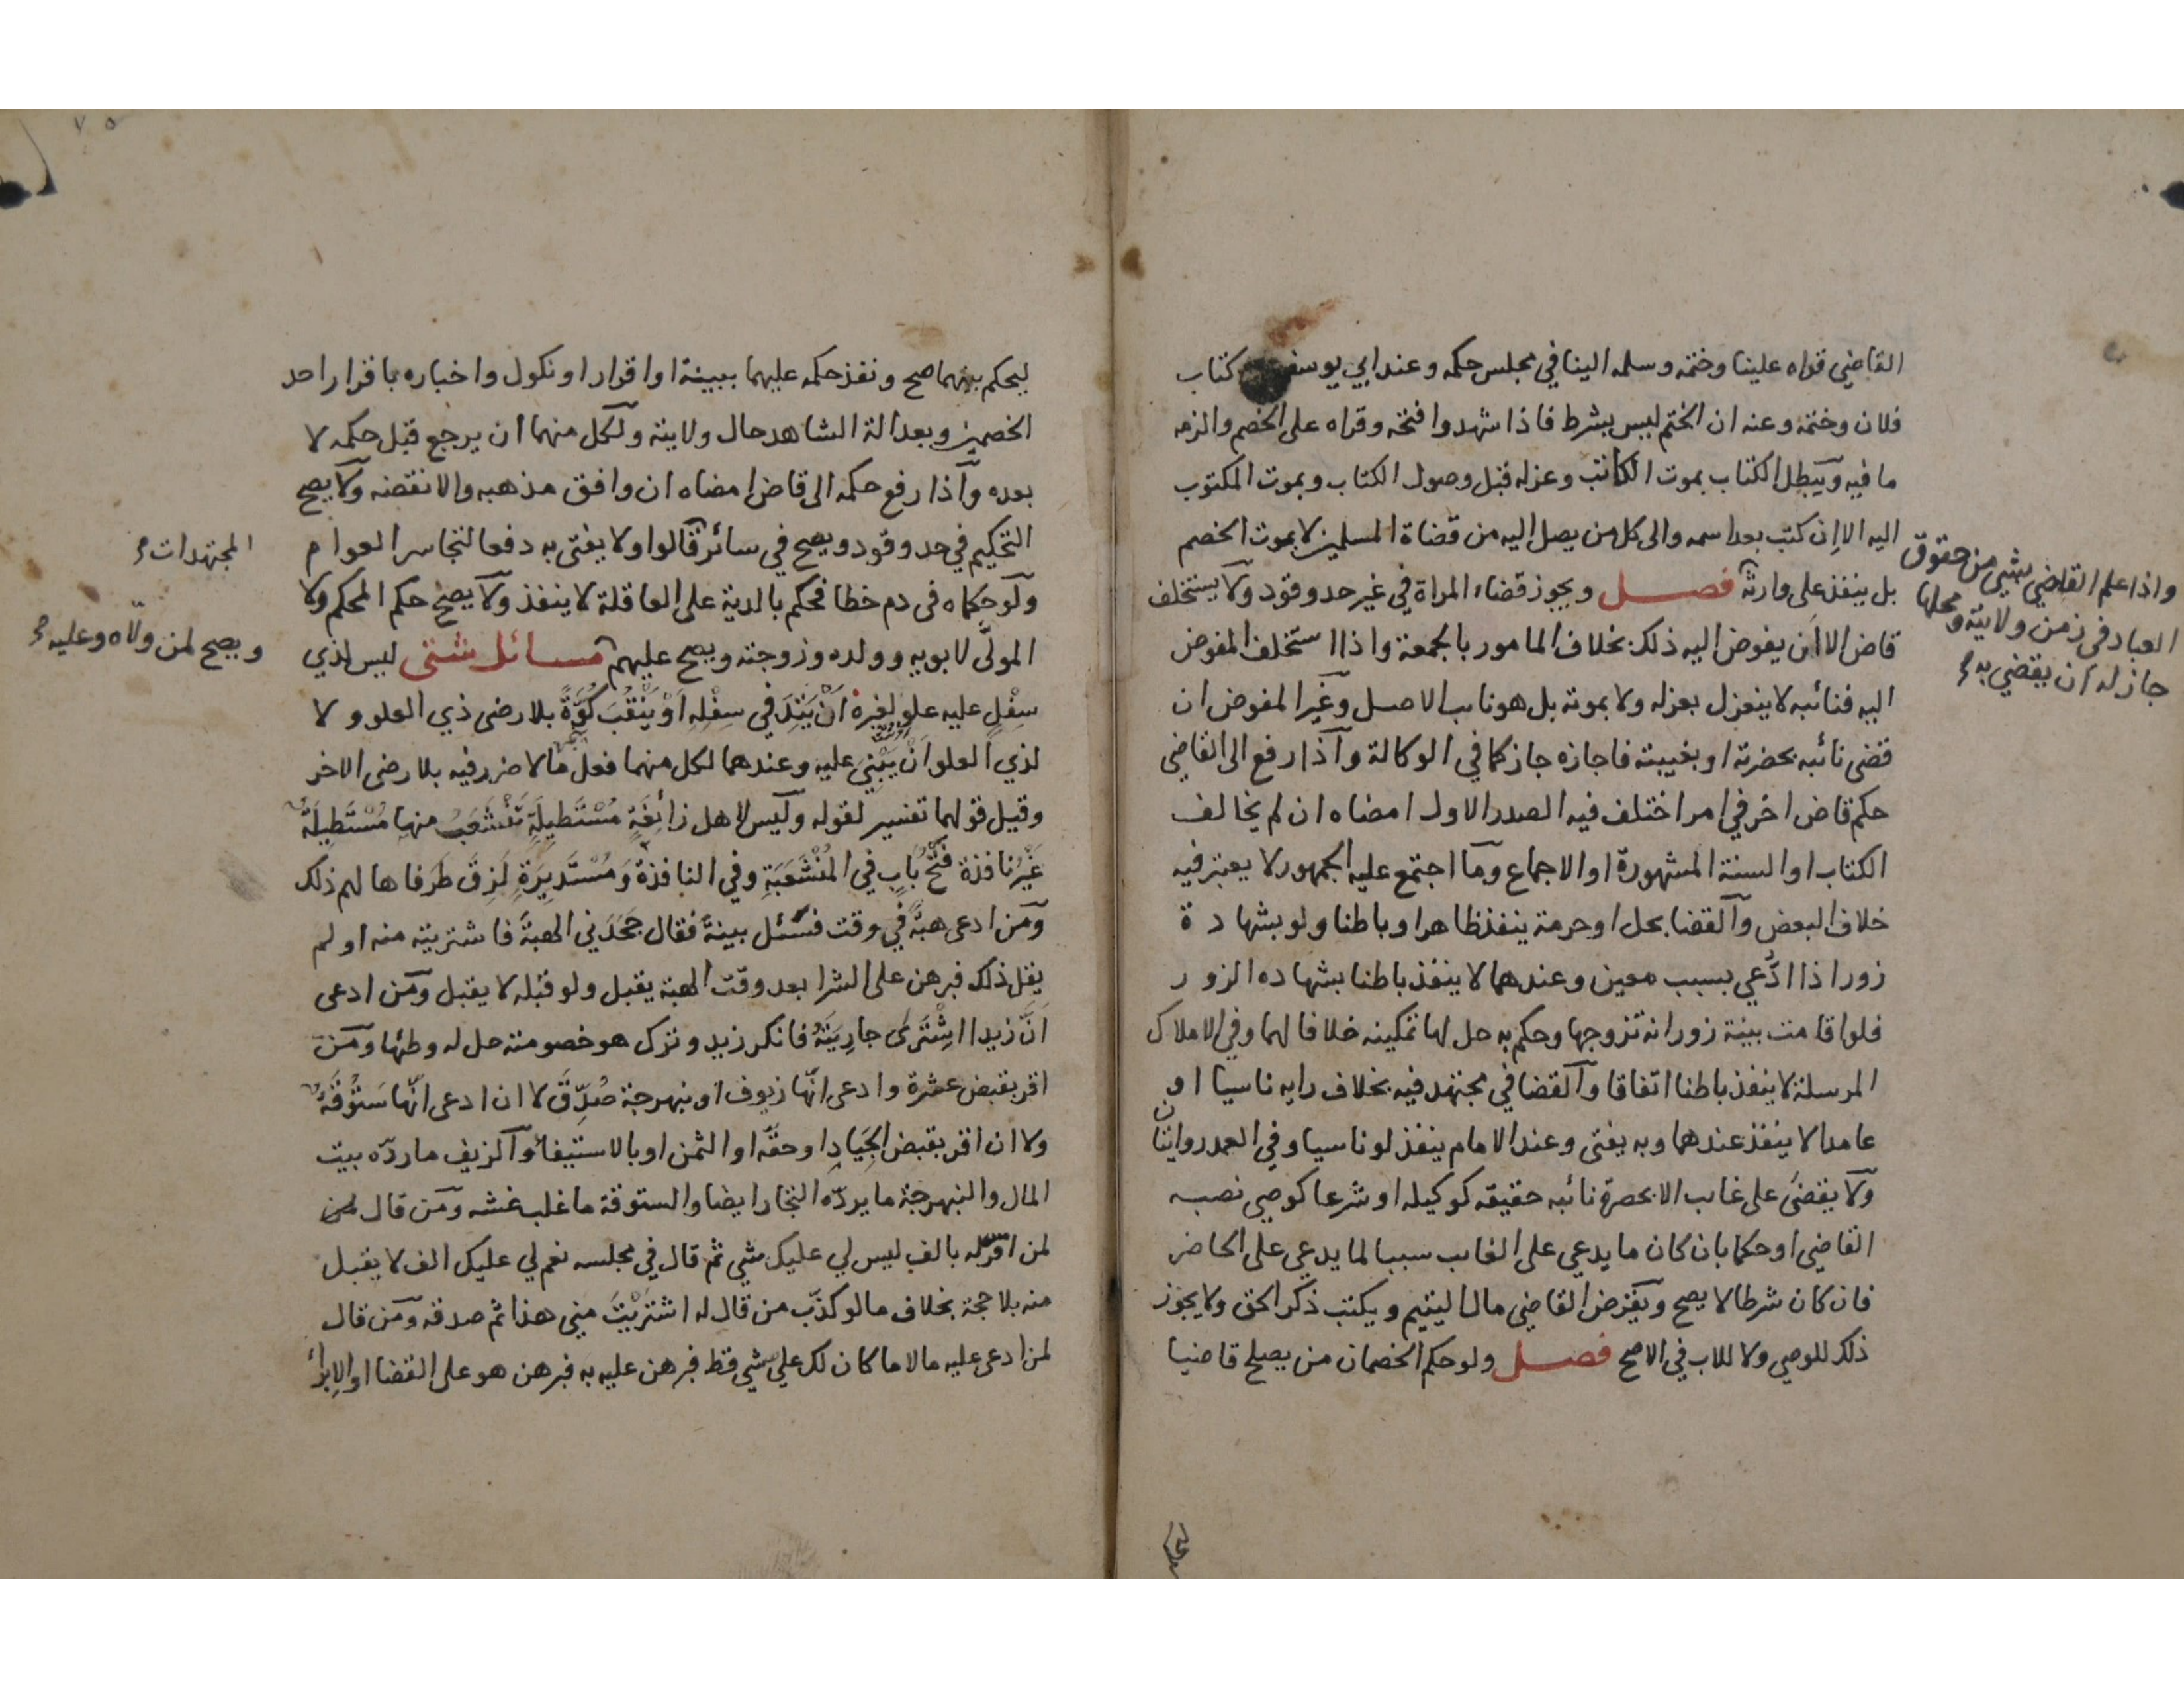 القاضي قراه علينا وختمه وسلمه الينا في مجلس حكمه وعند ابي يوسف كتاب
فلان وختمه وعنه ان الختم ليس بشرط فاذا شهدوا فتحه وقراه على الخصم والزمه
ما فيه ويبطل الكتاب بموت الكاتب وعزله قبل وصول الكتاب وبموت المكتوب
اليه الا ان كتب بعد اسمه والى كل من يصل اليه من قضاة المسلمين لا بموت الخصم
بل ينفذ على وارثه فصل ويجوز قضاء المراة في غير حد وقود ولا يستخلف
قاض الا ان يفوض اليه ذلك بخلاف المامور بالجمعة واذا استخلف المفوض
اليه فنائبه لا ينعزل بعزله ولا بموته بل هو نايب الاصل وغير المفوض ان
قضى نائبه بحضرته او بغيبته فاجازه جاز كما في الوكالة واذا رفع الى القاضي
حكم قاض اخر في امر اختلف فيه الصدر الاول امضاه ان لم يخالف
الكتاب او السنة المشهورة او الاجماع وما اجتمع عليه الجمهور لا يعتبر فيه
خلاف البعض والقضا بحل او حرمة ينفذ ظاهرا وباطنا ولو بشهادة
زور اذا ادُّعي بسبب معين وعندهما لا ينفذ باطنا بشهاده الزور
فلو اقامت بينة زور انه تزوجها وحكم به حل لها تمكينه خلافا لهما وفي الاملاك
المرسلة لا ينفذ باطنا اتفاقا والقضا في مجتهد فيه بخلاف رايه ناسيا او
عامدا لا ينفذ عندهما وبه يفتى وعند الامام ينفذ لو ناسيا وفي العمد روايتان
ولا يقضى على غايب الا بحضرة نائبه حقيقه كوكيله او شرعا كوصي نصبه
القاضي او حكما بان كان ما يدعي على الغايب سببا لما يدعي على الحاضر
فان كان شرطا لا يصح ويقرض القاضي مال اليتيم ويكتب ذكر الحق ولا يجوز
ذلك للوصي ولا للاب في الاصح فصل ولو حكم الخصمان من يصلح قاضيا
واذا علم القاضي بشي من حقوق
العباد في زمن ولايته ومحلها
جاز له ان يقضي به
ليحكم بينهما صح ونفذ حكمه عليهما ببينة او اقرار او نكول واخباره باقرار احد
الخصمين وبعدالة الشاهد حال ولايته ولكل منهما ان يرجع قبل حكمه لا
بعده واذا رفع حكمه الى قاض امضاه ان وافق مذهبه والا نقضه ولا يصح
التحكيم في حد وقود ويصح في سائر قالوا ولا يفتى به دفعا لتجاسر العوام
المجتهدات
ولو حكماه في دم خطا فحكم بالدية على العاقلة لا ينفذ ولا يصح حكم المحكم ولا
المولَّى لابويه وولده وزوجته ويصح عليهم مسائل شتى ليس لذي
ويصح لمن ولّاه وعليه
سِفْلٍ عليه علو لغيره اَنْ يَتِدَ في سِفْلِهِ اَوْ يَنْقُبَ كُوَّةً بلا رضى ذي العلو ولا
لذي العلو اَنْ يَبْنِيَ عليه وعندهما لكل منهما فعل ما لا ضرر فيه بلا رضى الاخر
وقيل قولهما تفسير لقوله وليس لاهل زائِغَةٍ مُسْتَطِيلَةٍ تَنْشَعِبُ منها مُسْتَطِيلَةٌ
غَيْرُ نافذة فَتْحُ بَابٍ في المُنْشَعِبَةِ وفي النافذة وَمُسْتَدِيرَةٍ لَزِقَ طَرَفاها لهم ذلك
ومن ادعى هبةً في وقت فسُئل بينةً فقال جَحَدَني الهبةَ فاشتريته منه او لم
يقل ذلك فبرهن على الشرا بعد وقت الهبة يقبل ولو قبله لا يقبل ومن ادعى
اَنَّ زيدا اشْتَرَى جارِيَتَهُ فانكر زيد وترك هو خصومته حل له وطئها ومن
اقر بقبض عشرة وادعى انّها زيوف او نبهرجة صُدِّقَ لا ان ادعى انّها سَتُوقَةٌ
ولا ان اقر بقبض الجِيَادِ او حقّه او الثمن او بالاستيفاء والزيف ما ردّه بيت
المال والنبهرجة ما يردّه التجار ايضا والستوقة ما غلب غشه ومن قال
لمن اقر له بالف ليس لي عليك شي ثم قال في مجلسه نعم لي عليك الف لا يقبل
منه بلا حجة بخلاف ما لو كذّب من قال له اشتَرَيْتَ مني هذا ثم صدقه ومن قال
لمن ادعى عليه مالا ما كان لك علي شي قط فبرهن عليه به فبرهن هو على القضا او الابراء